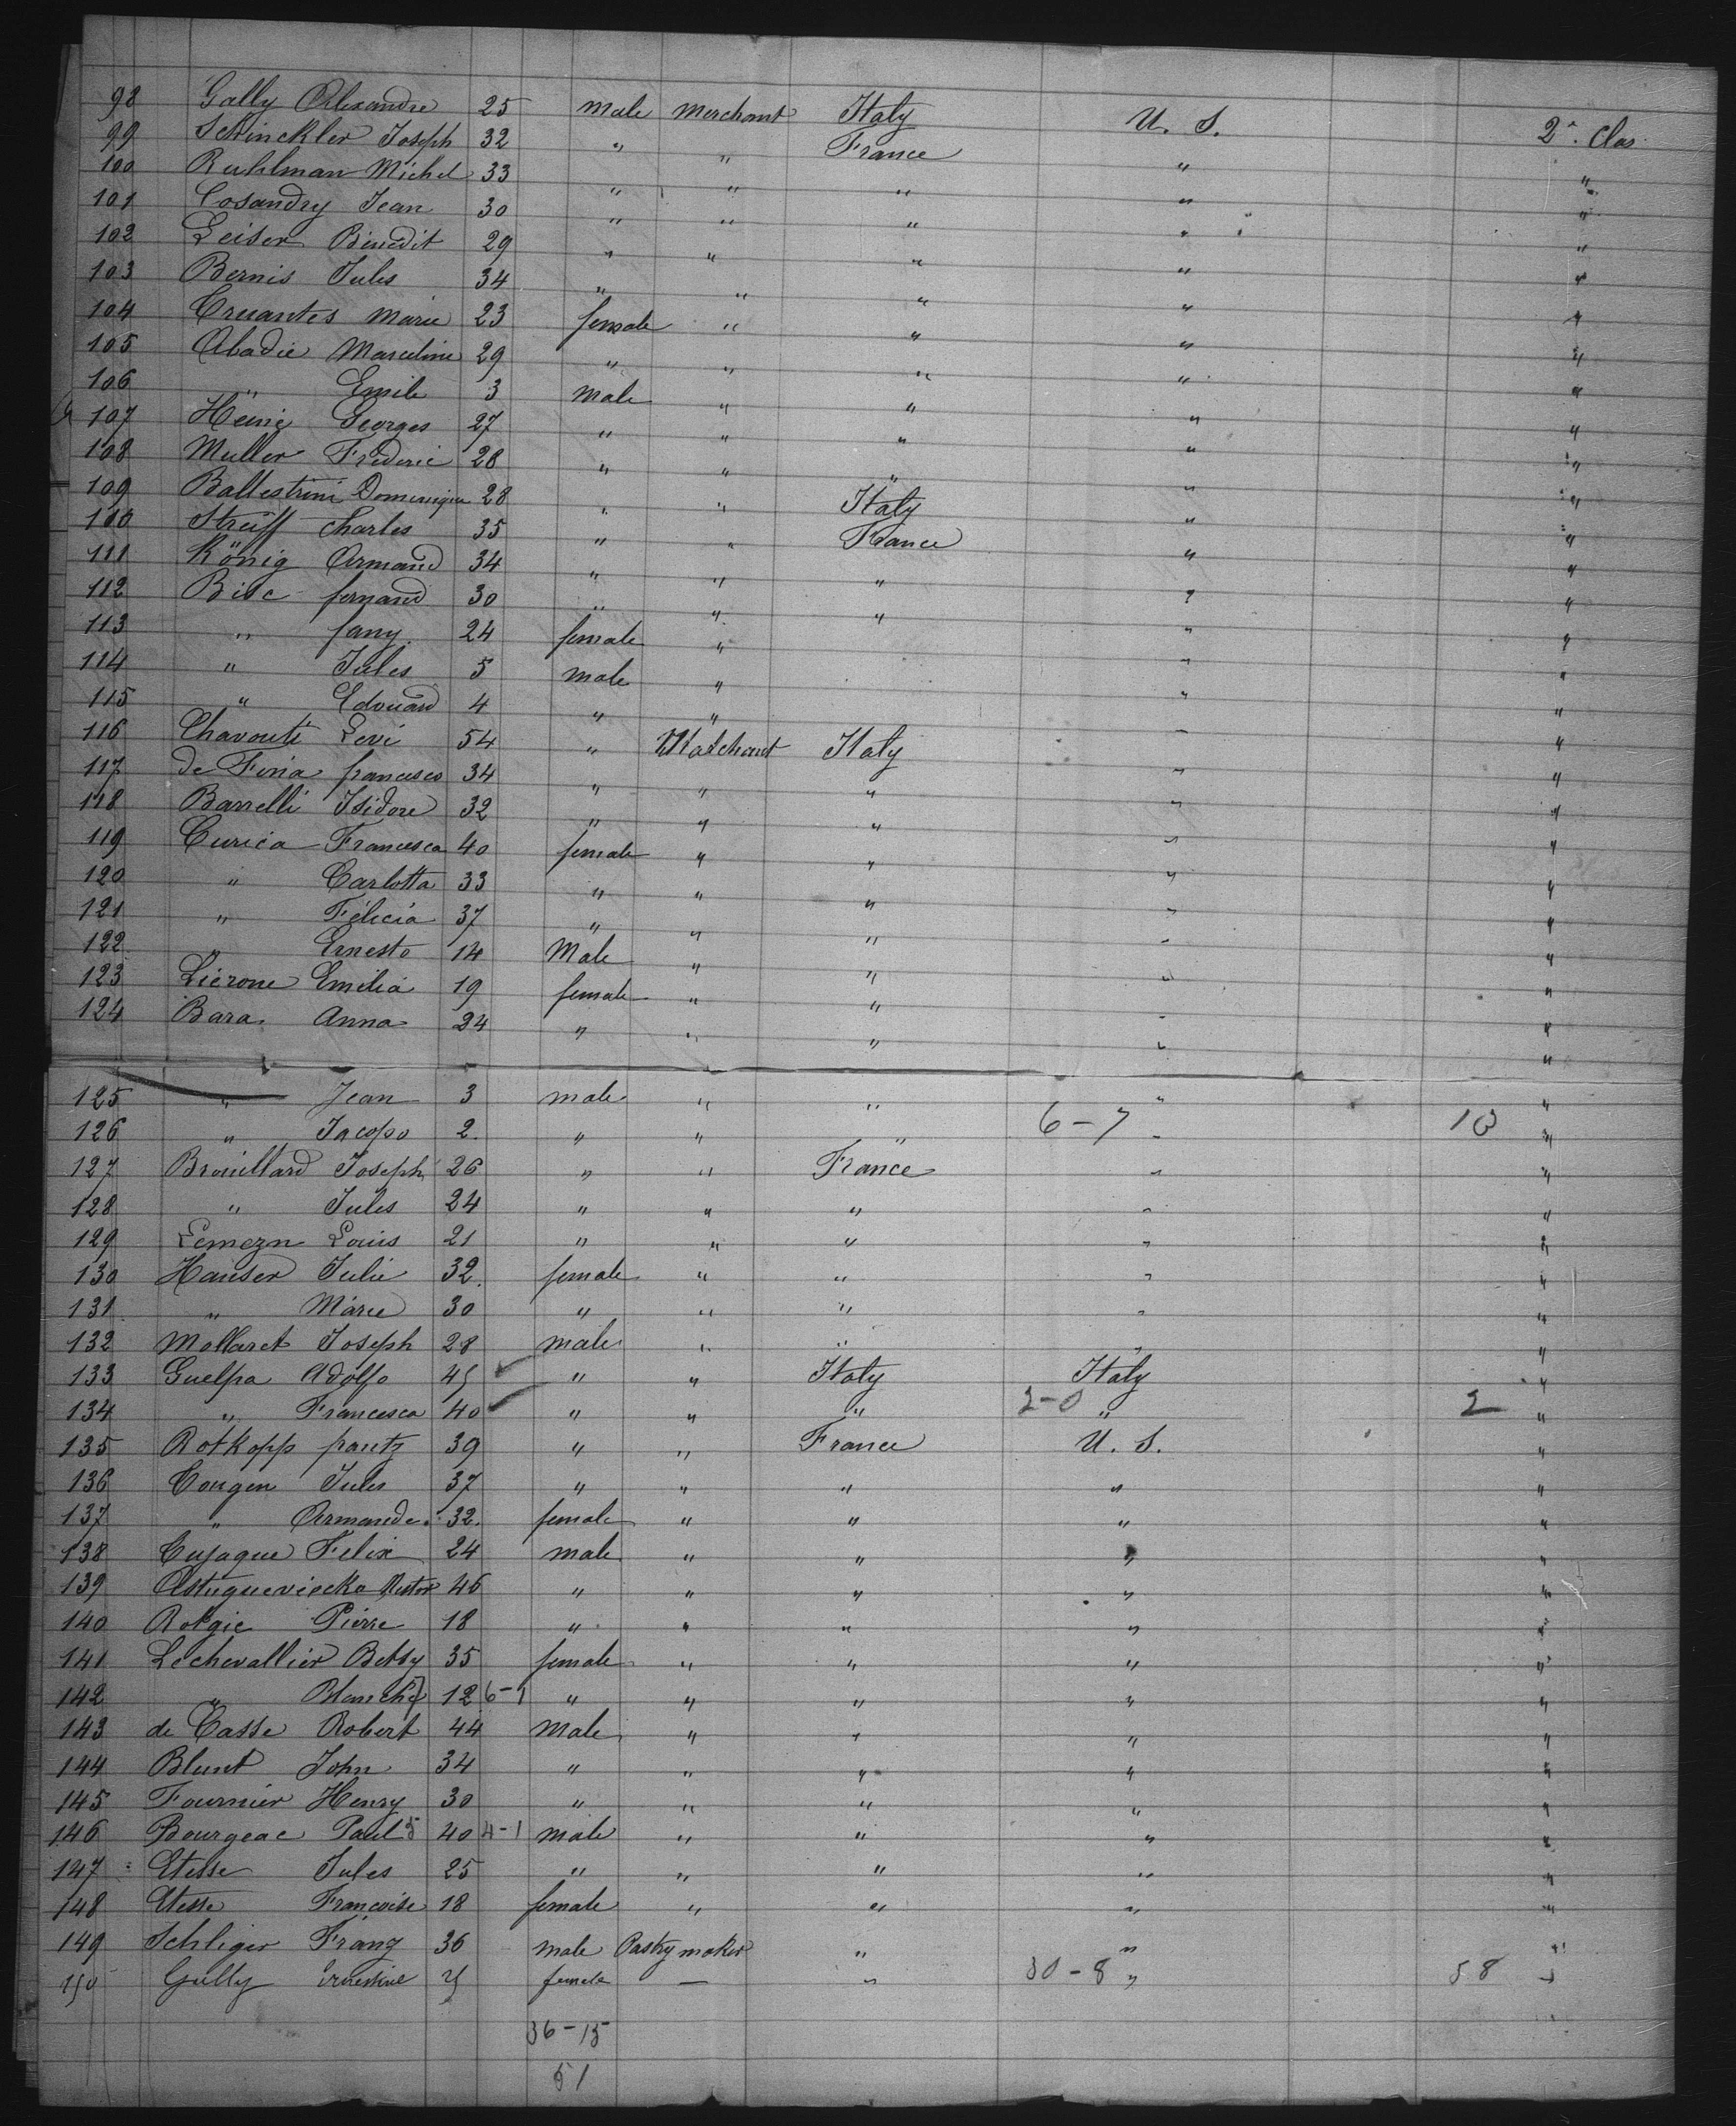 98 Gally Alexandre 25 male Merchant Italy U. S. 2e. Clas
99 Schinckler Joseph 32 " " France " "
100 Ruhlman Michel 33 " " " " "
101 Cosandry Jean 30 " " " " "
102 Leiser Binedit 29 " " " " "
103 Bernis Jules 34 " " " " "
104 Cruantes Marie 23 female " " " "
105 Abadie Marceline 29 " " " " "
106 " Emile 3 male " " " "
107 Heine Georges 27 " " " " "
108 Muller Frederic 28 " " " " "
109 Ballestrini Dominique 28 " " Italy " "
110 Streiff Charles 35 " " France " "
111 König Armand 34 " " " " "
112 Bisc fernand 30 " " " " "
113 " fany 24 female " " "
114 " Jules 5 male " " "
115 " Edouard 4 " " " "
116 Chavouti Levi 54 " Matchant Italy " "
117 de Firia francesco 34 " " " " "
118 Barrelli Isidore 32 " " " " "
119 Curica Francesca 40 female " " " "
120 " Carlotta 33 " " " " "
121 " Félicia 37 " " " " "
122 " Ernesto 14 Male " " " "
123 Lierone Emilia 19 female " " " "
124 Bara Anna 24 " " " " "
125 " Jean 3 male " " " "
126 " Jacopo 2 " " " 6-7 " 13 "
127 Brouillard Joseph 26 " " France " "
128 " Jules 24 " " " " "
129 Lemezn Louis 21 " " " " "
130 Hauser Julie 32 female " " " "
131 " Marie 30 " " " " "
132 Mollaret Joseph 28 male " " " "
133 Guelpa Adolfo 45 " " Italy Italy "
134 " Francesca 40 " " " 2-0 " 2 "
135 Rotkopp frantz 39 " " France U. S. "
136 Cougen Jules 37 " " " " "
137 " Armande 32 female " " " "
138 Cujaque Felix 24 male " " " "
139 Astugueviecke Nestor 46 " " " " "
140 Rotgie Pierre 18 " " " " "
141 Lechevallier Betsy 35 female " " " "
142 " Blanche 12 6-1 " " " " "
143 de Casse Robert 44 Male " " " "
144 Blunt John 34 " " " " "
145 Fournier Henry 30 " " " " "
146 Bourgeac Paul 40 4-1 male " " " "
147 Etesse Jules 25 " " " " "
148 Etesse Françoise 18 female " " " "
149 Schliger Franz 36 male Pastry maker " " "
150 Gully Ernestine 25 female — " 50-8 " 58 "
36-15
51